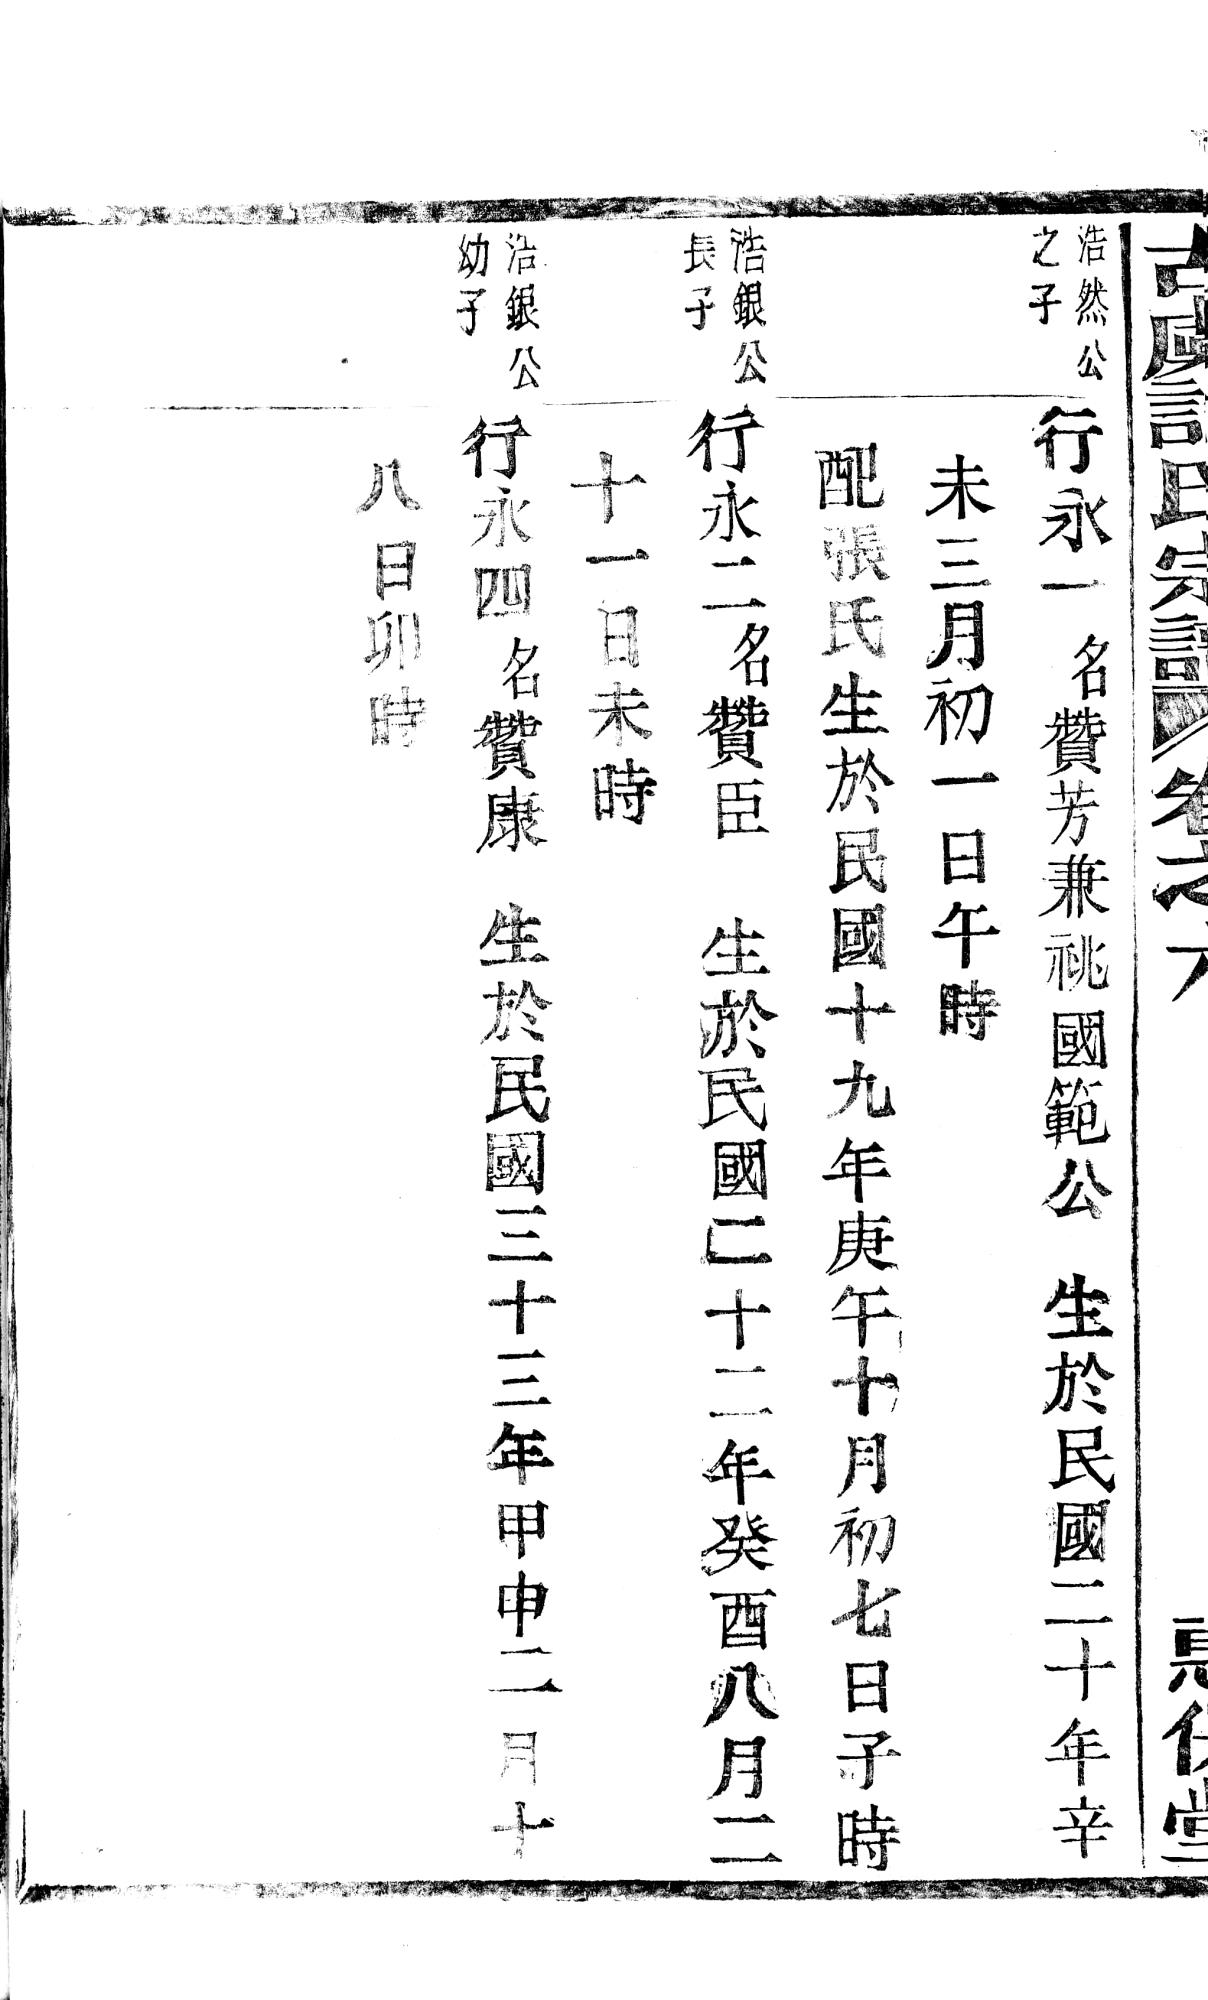 古虞氏宗譜 卷之六 堂
浩然公
之子
行永一 名贊芳兼祧國範公 生於民國二十年辛
未三月初一日午時
配張氏生於民國十九年庚午十月初七日子時
浩銀公
長子
行永二名贊臣 生於民國二十二年癸酉八月二
十一日未時
浩銀公
幼子
行永四 名贊康 生於民國三十三年甲申二月十
八日卯時